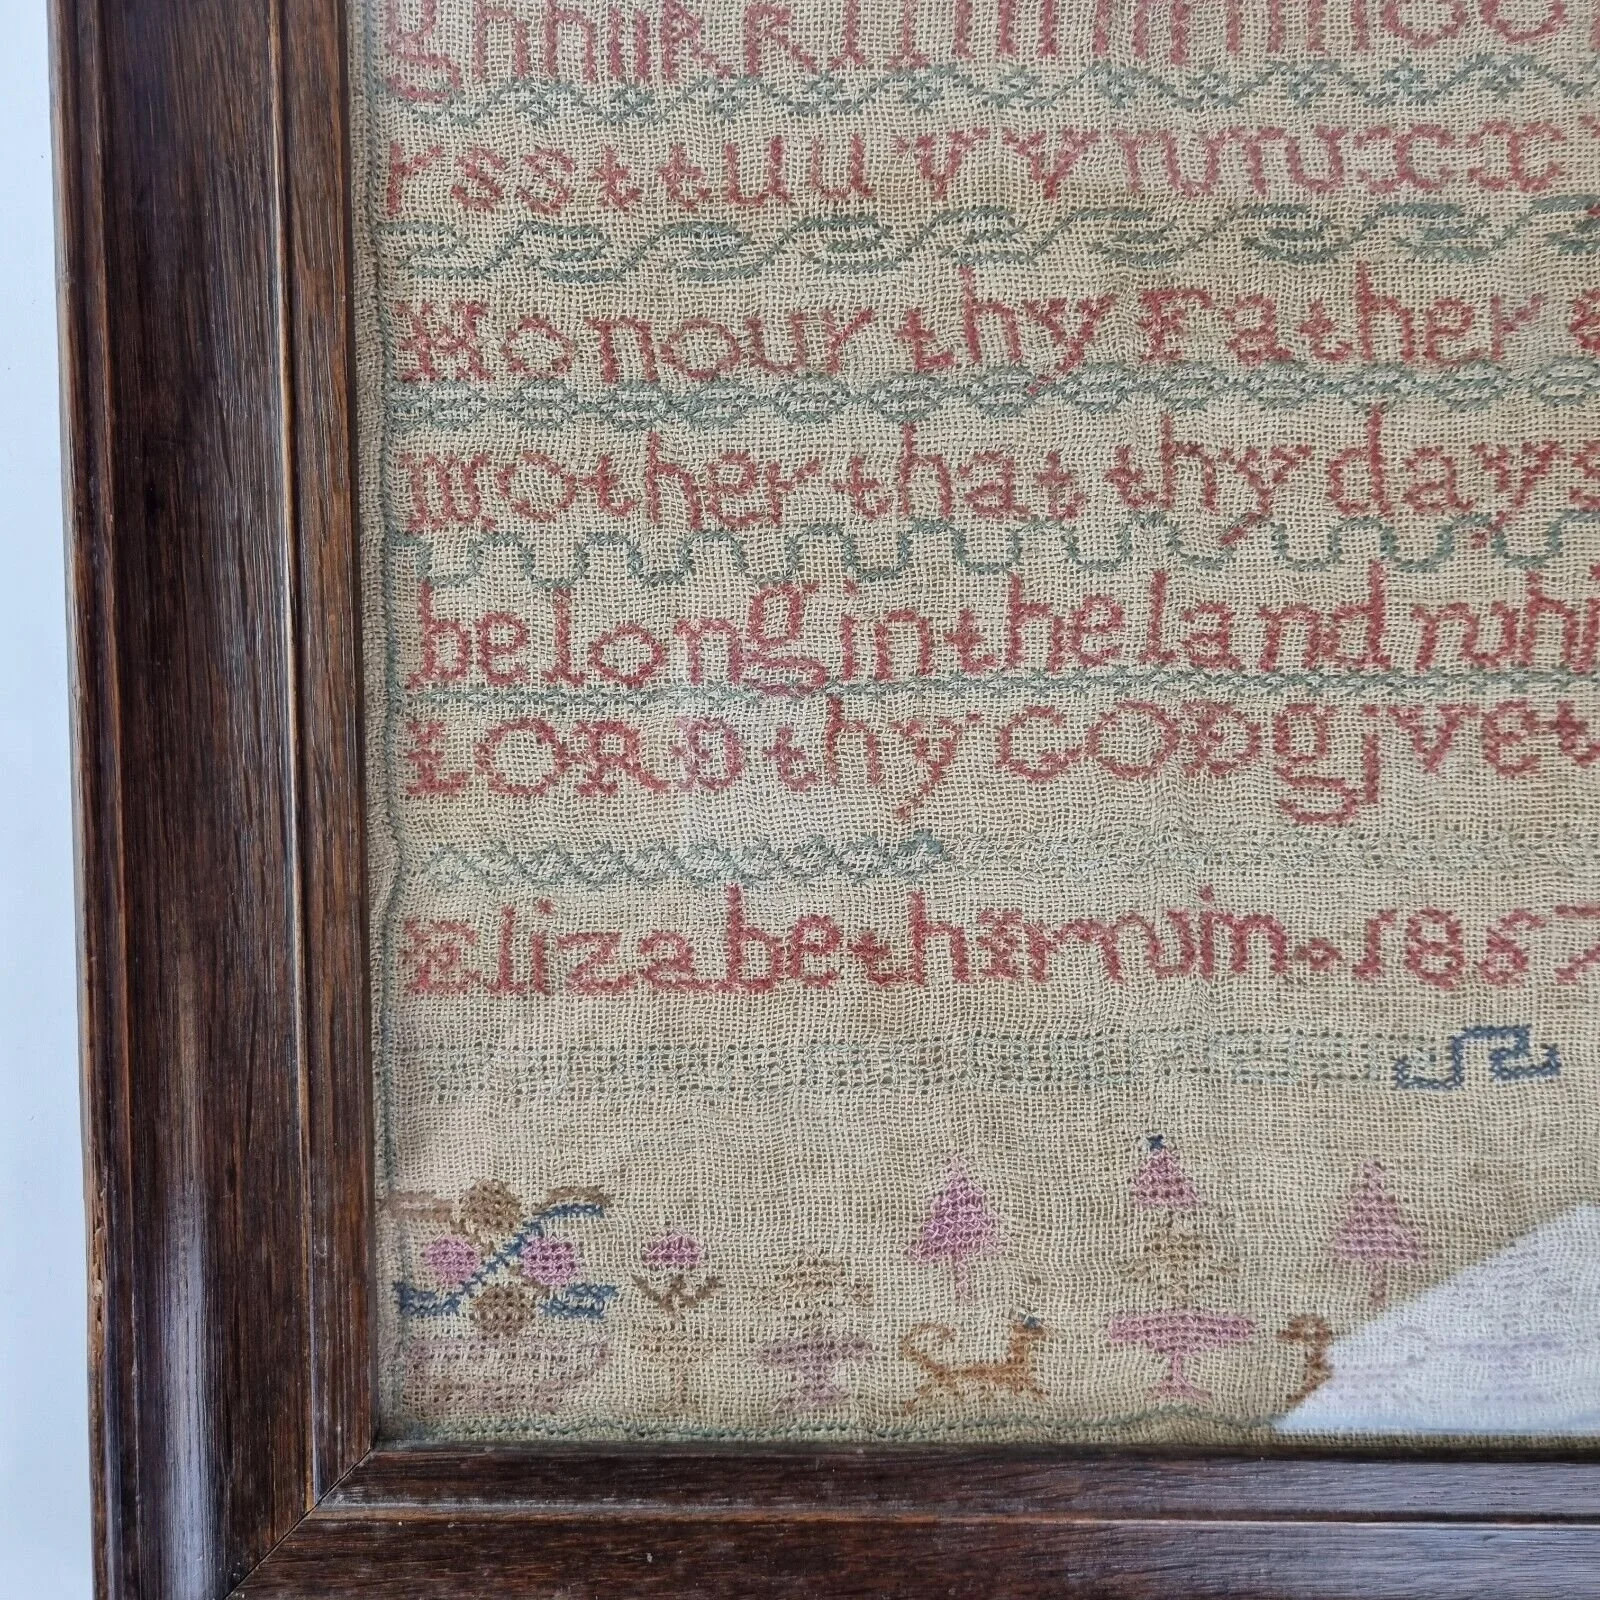 ghhiikkllmmoo
rssttuuvvwwxx
Honour thy Father
mother that thy days
be long in the land whi
LORD thy GOD givet
Elizabeth Irwin 1867